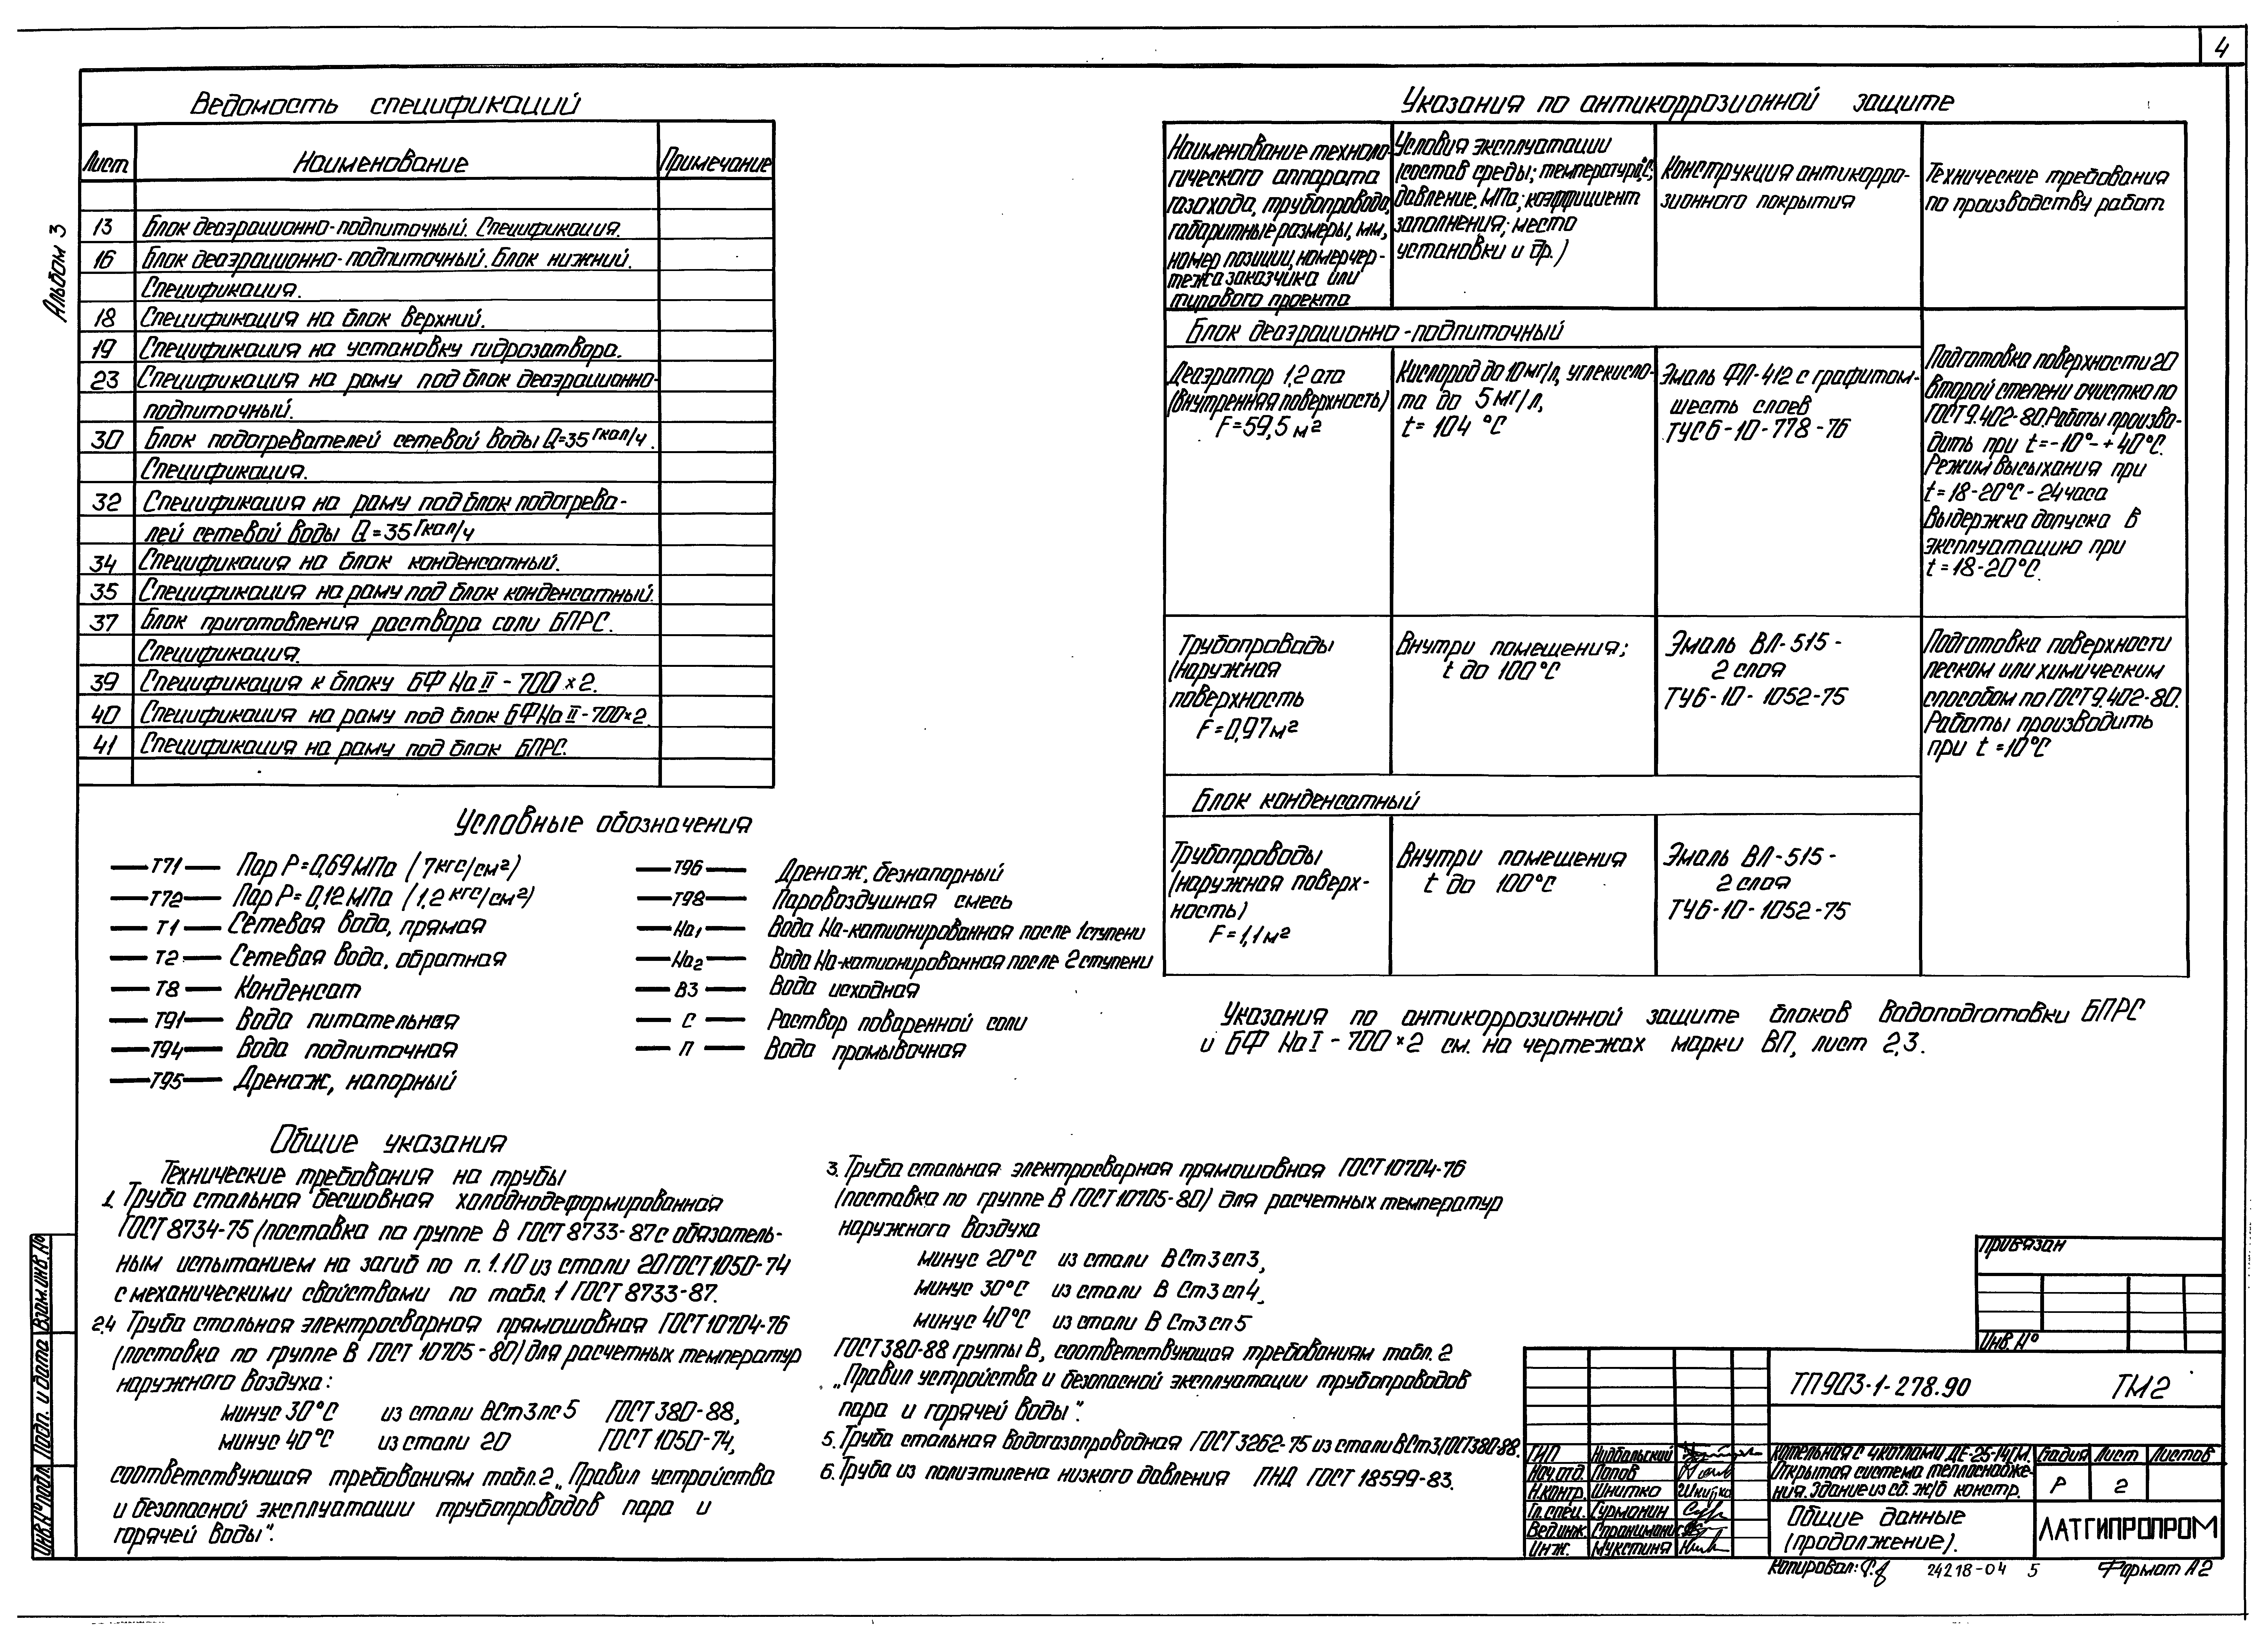 4
Альбом 3
Ведомость спецификаций
Лист Наименование Примечание
13 Блок деаэрационно-подпиточный. Спецификация.
16 Блок деаэрационно-подпиточный. Блок нижний.
Спецификация.
18 Спецификация на блок верхний.
19 Спецификация на установку гидрозатвора.
23 Спецификация на раму под блок деаэрационно-
подпиточный.
30 Блок подогревателей сетевой воды Q=35 Гкал/ч.
Спецификация.
32 Спецификация на раму под блок подогрева-
лей сетевой воды Q=35 Гкал/ч
34 Спецификация на блок конденсатный.
35 Спецификация на раму под блок конденсатный.
37 Блок приготовления раствора соли БПРС.
Спецификация.
39 Спецификация к блоку БФ Na II - 700×2.
40 Спецификация на раму под блок БФ Na II-700×2.
41 Спецификация на раму под блок БПРС.
Условные обозначения
Т71 Пар Р=0,69 МПа (7 кгс/см²)
Т72 Пар Р=0,12 МПа (1,2 кгс/см²)
Т1 Сетевая вода, прямая
Т2 Сетевая вода, обратная
Т8 Конденсат
Т91 Вода питательная
Т94 Вода подпиточная
Т95 Дренаж, напорный
Т96 Дренаж, безнапорный
Т98 Паровоздушная смесь
Na1 Вода Na-катионированная после 1 ступени
Na2 Вода Na-катионированная после 2 ступени
В3 Вода исходная
С Раствор поваренной соли
П Вода промывочная
Указания по антикоррозионной защите
Наименование техноло-
гического аппарата
газохода, трубопровода,
габаритные размеры, мм,
номер позиции, номер чер-
тежа заказчика или
типового проекта
Условия эксплуатации
(состав среды; температура, °С;
давление, МПа; коэффициент
заполнения; место
установки и др.)
Конструкция антикорро-
зионного покрытия
Технические требования
по производству работ
Блок деаэрационно-подпиточный
Деаэратор 1,2 ата
(внутренняя поверхность)
F=59,5 м²
Кислород до 10 мг/л, углекисло-
та до 5 мг/л,
t= 104 °С
Эмаль ФЛ-412 с графитом-
шесть слоев
ТУС6-10-778-76
Подготовка поверхности 20
второй степени очистка по
ГОСТ 9.402-80. Работы произво-
дить при t=-10°- +40°С.
Режим высыхания при
t=18-20°С-24часа
Выдержка допуска в
эксплуатацию при
t=18-20°С.
Трубопроводы
(наружная
поверхность
F=0,97м²
Внутри помещения;
t до 100°С
Эмаль ВЛ-515-
2 слоя
ТУ6-10-1052-75
Подготовка поверхности
песком или химическим
способом по ГОСТ 9.402-80.
Работы производить
при t =10°С
Блок конденсатный
Трубопроводы
(наружная поверх-
ность)
F=1,1м²
Внутри помещения
t до 100°С
Эмаль ВЛ-515-
2 слоя
ТУ6-10-1052-75
Указания по антикоррозионной защите блоков водоподготовки БПРС
и БФ Na I - 700×2 см. на чертежах марки ВП, лист 2,3.
Общие указания
Технические требования на трубы
1. Труба стальная бесшовная холоднодеформированная
ГОСТ 8734-75 (поставка по группе В ГОСТ 8733-87 с обязатель-
ным испытанием на загиб по п. 1.10 из стали 20 ГОСТ 1050-74
с механическими свойствами по табл. 1 ГОСТ 8733-87.
2,4 Труба стальная электросварная прямошовная ГОСТ 10704-76
(поставка по группе В ГОСТ 10705-80) для расчетных температур
наружного воздуха:
минус 30°С из стали ВСт3пс5 ГОСТ 380-88,
минус 40°С из стали 20 ГОСТ 1050-74,
соответствующая требованиям табл. 2 „Правил устройства
и безопасной эксплуатации трубопроводов пара и
горячей воды".
3. Труба стальная электросварная прямошовная ГОСТ 10704-76
(поставка по группе В ГОСТ 10705-80) для расчетных температур
наружного воздуха
минус 20°С из стали ВСт3сп3,
минус 30°С из стали В Ст3сп4,
минус 40°С из стали В Ст3сп5
ГОСТ 380-88 группы В, соответствующая требованиям табл. 2
„Правил устройства и безопасной эксплуатации трубопроводов
пара и горячей воды".
5. Труба стальная водогазопроводная ГОСТ 3262-75 из стали ВСт3 ГОСТ 380-88.
6. Труба из полиэтилена низкого давления ПНД ГОСТ 18599-83.
Инв.№ подл. Подп. и дата Взам.инв.№
Привязан
Инв. №
ТП 903-1-278.90 ТМ2
ГИП Нидбальский
Нач.отд. Попов
Н.контр. Шнитко
Гл.спец. Гурманин
Вед.инж.
Инж. Мукстиня
Котельная с 4 котлами ДЕ-25-14ГМ.
Открытая система теплоснабже-
ния. Здание из сб. ж/б констр.
Стадия Лист Листов
Р 2
Общие данные
(продолжение).
ЛАТГИПРОПРОМ
Копировал: 24218-04 5 Формат А2